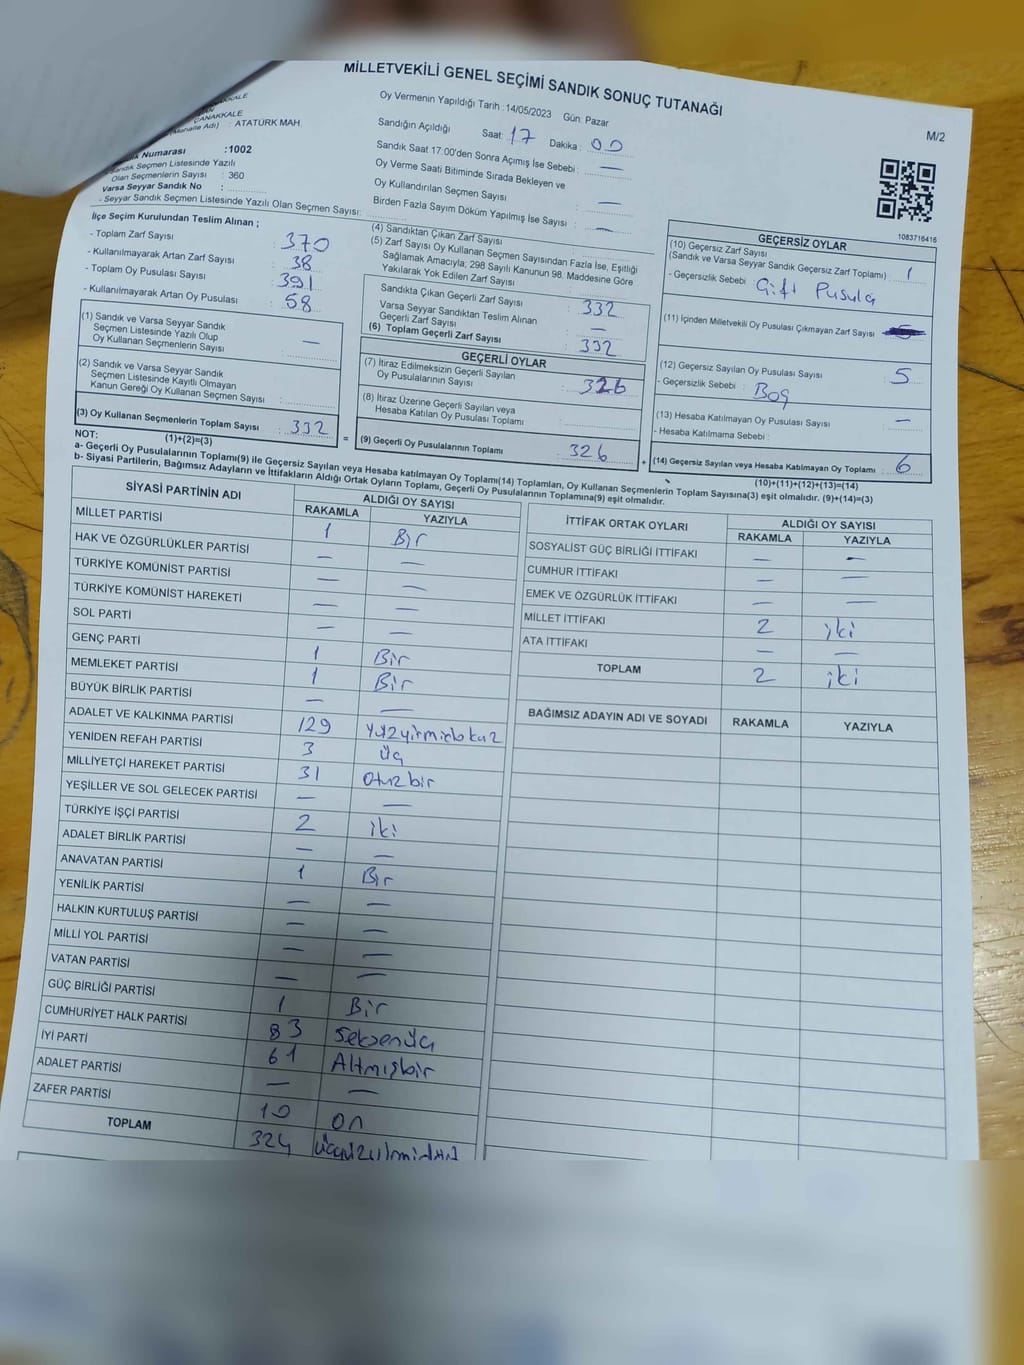 MİLLETVEKİLİ GENEL SEÇİMİ SANDIK SONUÇ TUTANAĞI
M/2
ÇANAKKALE
(Mahalle Adı) : ATATÜRK MAH.
Numarası :1002
Sandık Seçmen Listesinde Yazılı
Olan Seçmenlerin Sayısı : 360
Varsa Seyyar Sandık No :
- Seyyar Sandık Seçmen Listesinde Yazılı Olan Seçmen Sayısı:
Oy Vermenin Yapıldığı Tarih :14/05/2023 Gün: Pazar
Sandığın Açıldığı Saat: 17 Dakika : 00
Sandık Saat 17:00'den Sonra Açılmış İse Sebebi : —
Oy Verme Saati Bitiminde Sırada Bekleyen ve
Oy Kullandırılan Seçmen Sayısı : —
Birden Fazla Sayım Döküm Yapılmış İse Sayısı : —
İlçe Seçim Kurulundan Teslim Alınan ;
- Toplam Zarf Sayısı : 370
- Kullanılmayarak Artan Zarf Sayısı : 38
- Toplam Oy Pusulası Sayısı : 391
- Kullanılmayarak Artan Oy Pusulası : 58
(1) Sandık ve Varsa Seyyar Sandık
Seçmen Listesinde Yazılı Olup
Oy Kullanan Seçmenlerin Sayısı : —
(2) Sandık ve Varsa Seyyar Sandık
Seçmen Listesinde Kayıtlı Olmayan
Kanun Gereği Oy Kullanan Seçmen Sayısı :
(3) Oy Kullanan Seçmenlerin Toplam Sayısı : 332
(1)+(2)=(3)
(4) Sandıktan Çıkan Zarf Sayısı :
(5) Zarf Sayısı Oy Kullanan Seçmen Sayısından Fazla İse, Eşitliği
Sağlamak Amacıyla, 298 Sayılı Kanunun 98. Maddesine Göre
Yakılarak Yok Edilen Zarf Sayısı :
Sandıkta Çıkan Geçerli Zarf Sayısı : 332
Varsa Seyyar Sandıktan Teslim Alınan
Geçerli Zarf Sayısı : —
(6) Toplam Geçerli Zarf Sayısı : 332
GEÇERLİ OYLAR
(7) İtiraz Edilmeksizin Geçerli Sayılan
Oy Pusulalarının Sayısı : 326
(8) İtiraz Üzerine Geçerli Sayılan veya
Hesaba Katılan Oy Pusulası Toplamı :
= (9) Geçerli Oy Pusulalarının Toplamı : 326
GEÇERSİZ OYLAR
1083716416
(10) Geçersiz Zarf Sayısı
(Sandık ve Varsa Seyyar Sandık Geçersiz Zarf Toplamı) : 1
- Geçersizlik Sebebi : Çift Pusula
(11) İçinden Milletvekili Oy Pusulası Çıkmayan Zarf Sayısı :
(12) Geçersiz Sayılan Oy Pusulası Sayısı : 5
- Geçersizlik Sebebi : Boş
(13) Hesaba Katılmayan Oy Pusulası Sayısı : —
- Hesaba Katılmama Sebebi :
+ (14) Geçersiz Sayılan veya Hesaba Katılmayan Oy Toplamı : 6
(10)+(11)+(12)+(13)=(14)
NOT:
a- Geçerli Oy Pusulalarının Toplamı(9) ile Geçersiz Sayılan veya Hesaba katılmayan Oy Toplamı(14) Toplamları, Oy Kullanan Seçmenlerin Toplam Sayısına(3) eşit olmalıdır. (9)+(14)=(3)
b- Siyasi Partilerin, Bağımsız Adayların ve İttifakların Aldığı Ortak Oyların Toplamı, Geçerli Oy Pusulalarının Toplamına(9) eşit olmalıdır.
SİYASİ PARTİNİN ADI ALDIĞI OY SAYISI
RAKAMLA YAZIYLA
MİLLET PARTİSİ 1 Bir
HAK VE ÖZGÜRLÜKLER PARTİSİ — —
TÜRKİYE KOMÜNİST PARTİSİ — —
TÜRKİYE KOMÜNİST HAREKETİ — —
SOL PARTİ — —
GENÇ PARTİ 1 Bir
MEMLEKET PARTİSİ 1 Bir
BÜYÜK BİRLİK PARTİSİ — —
ADALET VE KALKINMA PARTİSİ 129 Yüzyirmidokuz
YENİDEN REFAH PARTİSİ 3 Üç
MİLLİYETÇİ HAREKET PARTİSİ 31 Otuzbir
YEŞİLLER VE SOL GELECEK PARTİSİ — —
TÜRKİYE İŞÇİ PARTİSİ 2 iki
ADALET BİRLİK PARTİSİ — —
ANAVATAN PARTİSİ 1 Bir
YENİLİK PARTİSİ — —
HALKIN KURTULUŞ PARTİSİ — —
MİLLİ YOL PARTİSİ — —
VATAN PARTİSİ — —
GÜÇ BİRLİĞİ PARTİSİ 1 Bir
CUMHURİYET HALK PARTİSİ 83 Seksenüç
İYİ PARTİ 61 Altmışbir
ADALET PARTİSİ — —
ZAFER PARTİSİ 10 on
TOPLAM 324 Üçyüzyirmidört
İTTİFAK ORTAK OYLARI ALDIĞI OY SAYISI
RAKAMLA YAZIYLA
SOSYALİST GÜÇ BİRLİĞİ İTTİFAKI — —
CUMHUR İTTİFAKI — —
EMEK VE ÖZGÜRLÜK İTTİFAKI — —
MİLLET İTTİFAKI 2 iki
ATA İTTİFAKI — —
TOPLAM 2 iki
BAĞIMSIZ ADAYIN ADI VE SOYADI RAKAMLA YAZIYLA